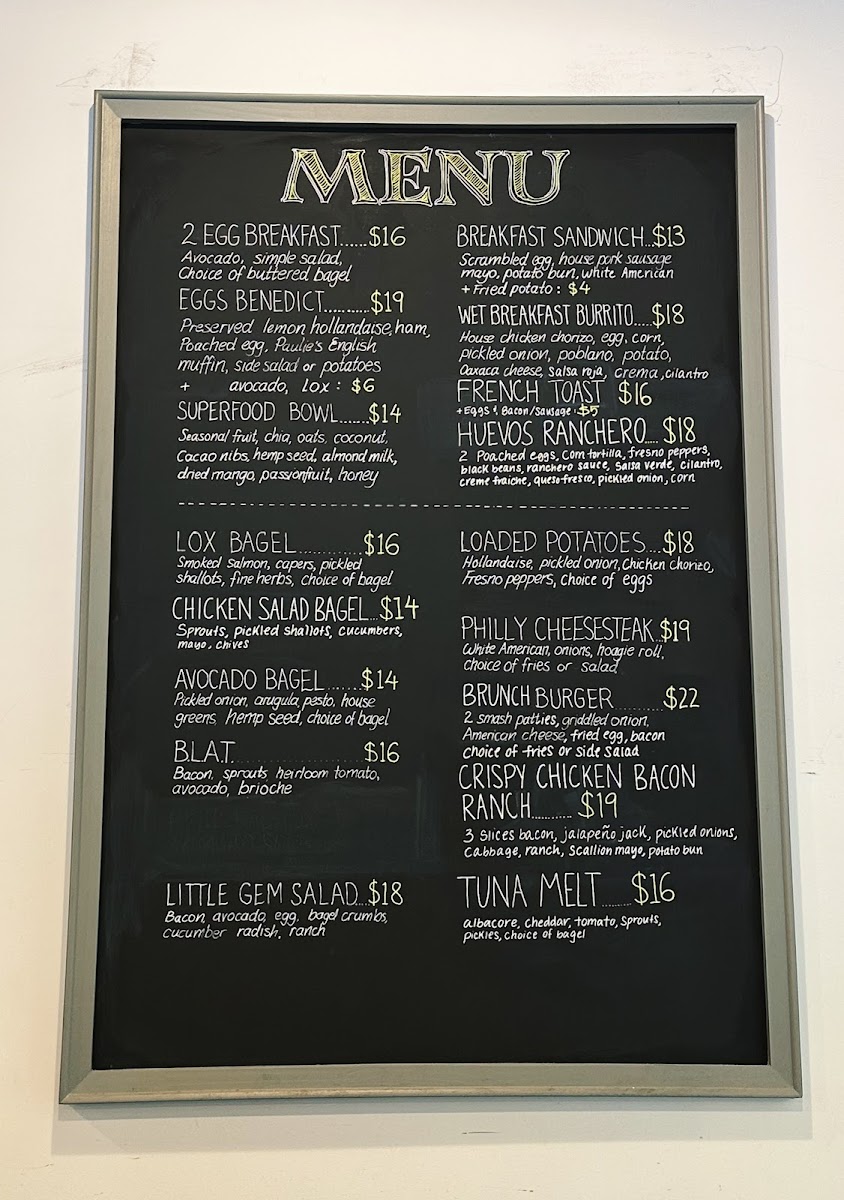 MENU
2 EGG BREAKFAST......$16
Avocado, simple salad,
Choice of buttered bagel
EGGS BENEDICT...........$19
Preserved lemon hollandaise, ham,
Poached egg, Paulie's English
muffin, side salad or potatoes
+ avocado, lox: $6
SUPERFOOD BOWL.......$14
Seasonal fruit, chia, oats, coconut,
Cacao nibs, hemp seed, almond milk,
dried mango, passionfruit, honey
BREAKFAST SANDWICH...$13
Scrambled egg, house pork sausage
mayo, potato bun, white American
+ Fried potato: $4
WET BREAKFAST BURRITO....$18
House chicken chorizo, egg, corn,
pickled onion, poblano, potato,
Oaxaca cheese, salsa roja, crema, cilantro
FRENCH TOAST $16
+ Eggs & Bacon/Sausage: $5
HUEVOS RANCHERO.....$18
2 Poached eggs, corn tortilla, fresno peppers,
black beans, ranchero sauce, salsa verde, cilantro,
creme fraiche, queso fresco, pickled onion, corn
LOX BAGEL............$16
Smoked salmon, capers, pickled
shallots, fine herbs, choice of bagel
CHICKEN SALAD BAGEL...$14
Sprouts, pickled shallots, cucumbers,
mayo, chives
AVOCADO BAGEL.......$14
Pickled onion, arugula pesto, house
greens, hemp seed, choice of bagel
B.L.A.T. ..................$16
Bacon, sprouts heirloom tomato,
avocado, brioche
LITTLE GEM SALAD...$18
Bacon, avocado, egg, bagel crumbs,
cucumber radish, ranch
LOADED POTATOES....$18
Hollandaise, pickled onion, Chicken Chorizo,
Fresno peppers, choice of eggs
PHILLY CHEESESTEAK..$19
White American, onions, hoagie roll,
choice of fries or salad
BRUNCH BURGER.........$22
2 smash patties, griddled onion,
American cheese, fried egg, bacon
choice of fries or side salad
CRISPY CHICKEN BACON
RANCH.......... $19
3 slices bacon, jalapeño jack, pickled onions,
Cabbage, ranch, Scallion mayo, potato bun
TUNA MELT.......$16
albacore, cheddar, tomato, sprouts,
pickles, choice of bagel